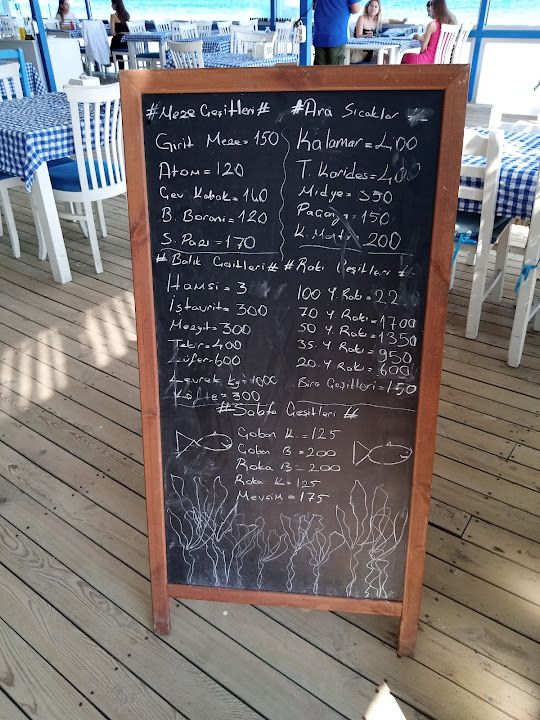 #Meze Çeşitleri#
Girit Meze=150
Atom=120
Çev Kabak=140
B. Borani=120
S. Pazı=170
#Ara Sıcaklar#
Kalamar=400
T. Karides=400
Midye=350
Paçanga=150
K. Mantı=200
#Balık Çeşitleri#
Hamsi=3
İstavrit=300
Mezgit=300
Tekir=400
Lüfer=600
Levrek kg=1000
Köfte=300
#Rakı Çeşitleri#
100 Y. Rakı=22
70 Y Rakı=1700
50 Y. Rakı=1350
35 Y. Rakı=950
20 Y. Rakı=600
Bira Çeşitleri=150
#Salata Çeşitleri#
Çoban K.=125
Çoban B=200
Roka B=200
Roka K=125
Mevsim=175